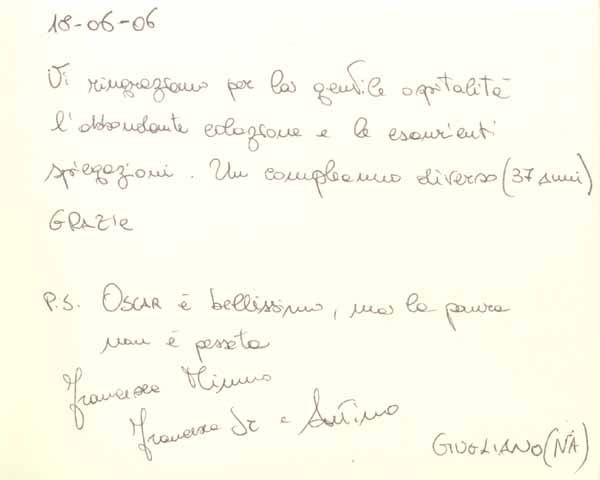 18-06-06
Vi ringraziamo per la gentile ospitalità
l'abbondante colazione e le esaurienti
spiegazioni. Un compleanno diverso (37 anni)
GRAZIE
P.S. OSCAR è bellissimo, ma la paura
non è passata
Francesca Mimmo
Francesco Jr e
GIUGLIANO (NA)